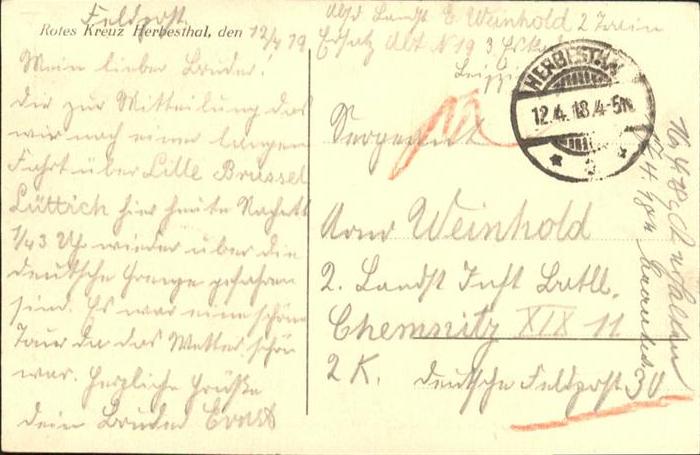 Feldpost
Rotes Kreuz Herbesthal, den 12/4 19
Mein lieber Bruder!
Dir zur Mitteilung das
wir nach einer langen
Fahrt über Lille Brüssel
Lüttich hier heute Nachts
1/43 Uhr wieder über die
deutsche Grenze gefahren
sind. Es war eine schöne
Tour da das Wetter schön
war. Herzliche Grüße
dein Bruder Ernst
Absd Landst E. Weinhold 2
Ersatz Abt N 19 3
Leipzig
HERBESTHAL
12.4.18.4-5N
Sergeant
Arno Weinhold
2. Landst Inft Batll.
Chemnitz XIX 11
2 K. Deutsche Feldpost 30